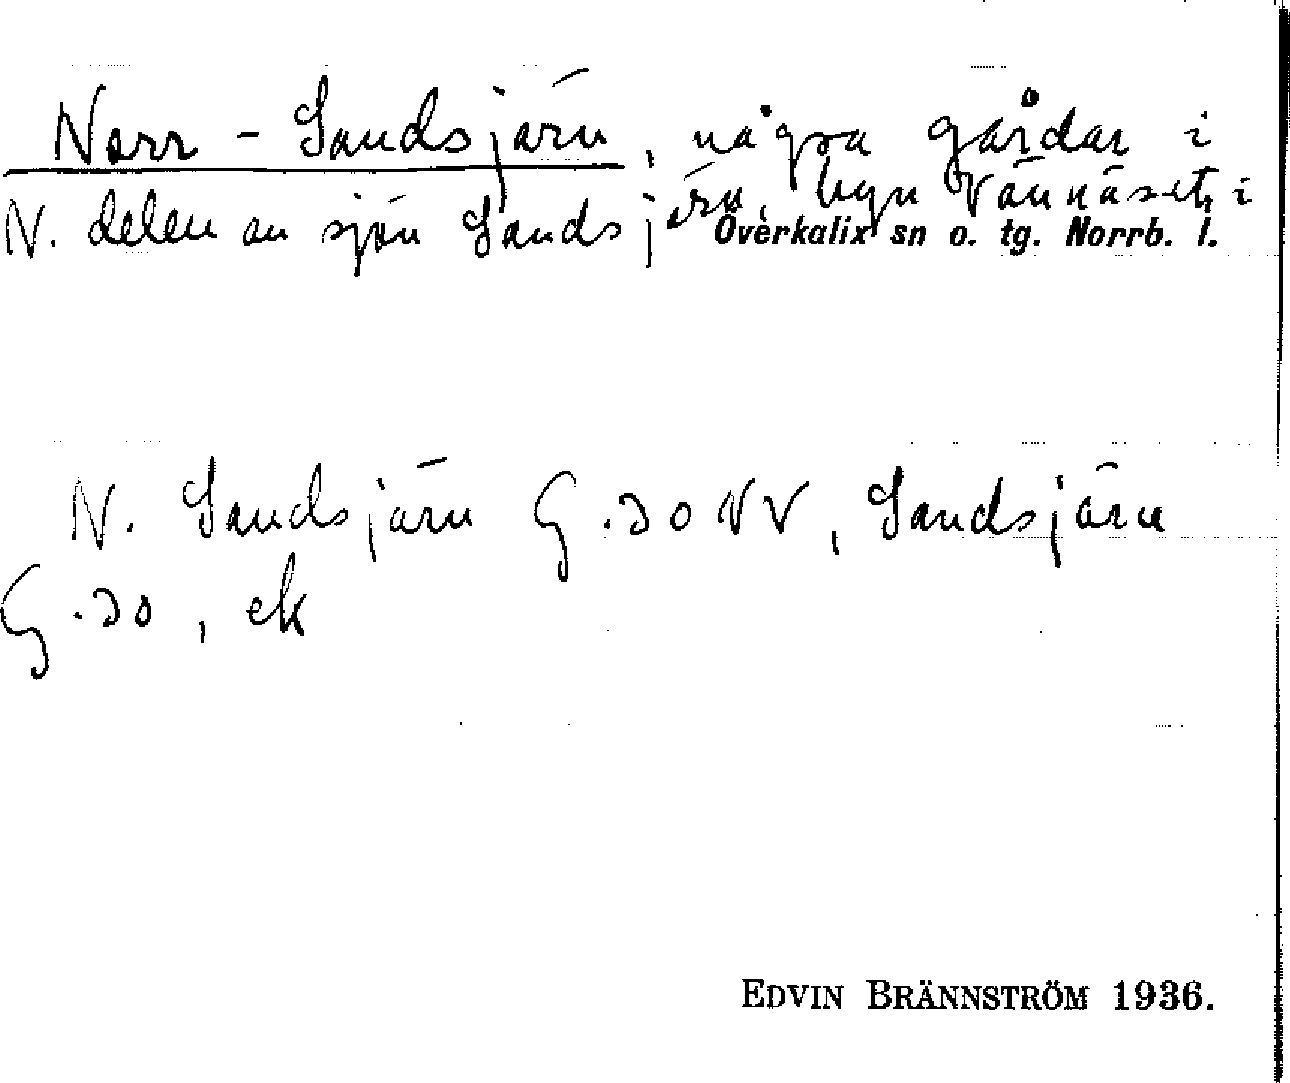 Norr-Sandsjärn, några gårdar i
N. delen av sjön Sandsjärn, byn Vännäset, i
Överkalix sn o. tg. Norrb. l.
N. Sandsjärn G.30NV, Sandsjärn
G.30, ek
EDVIN BRÄNNSTRÖM 1936.